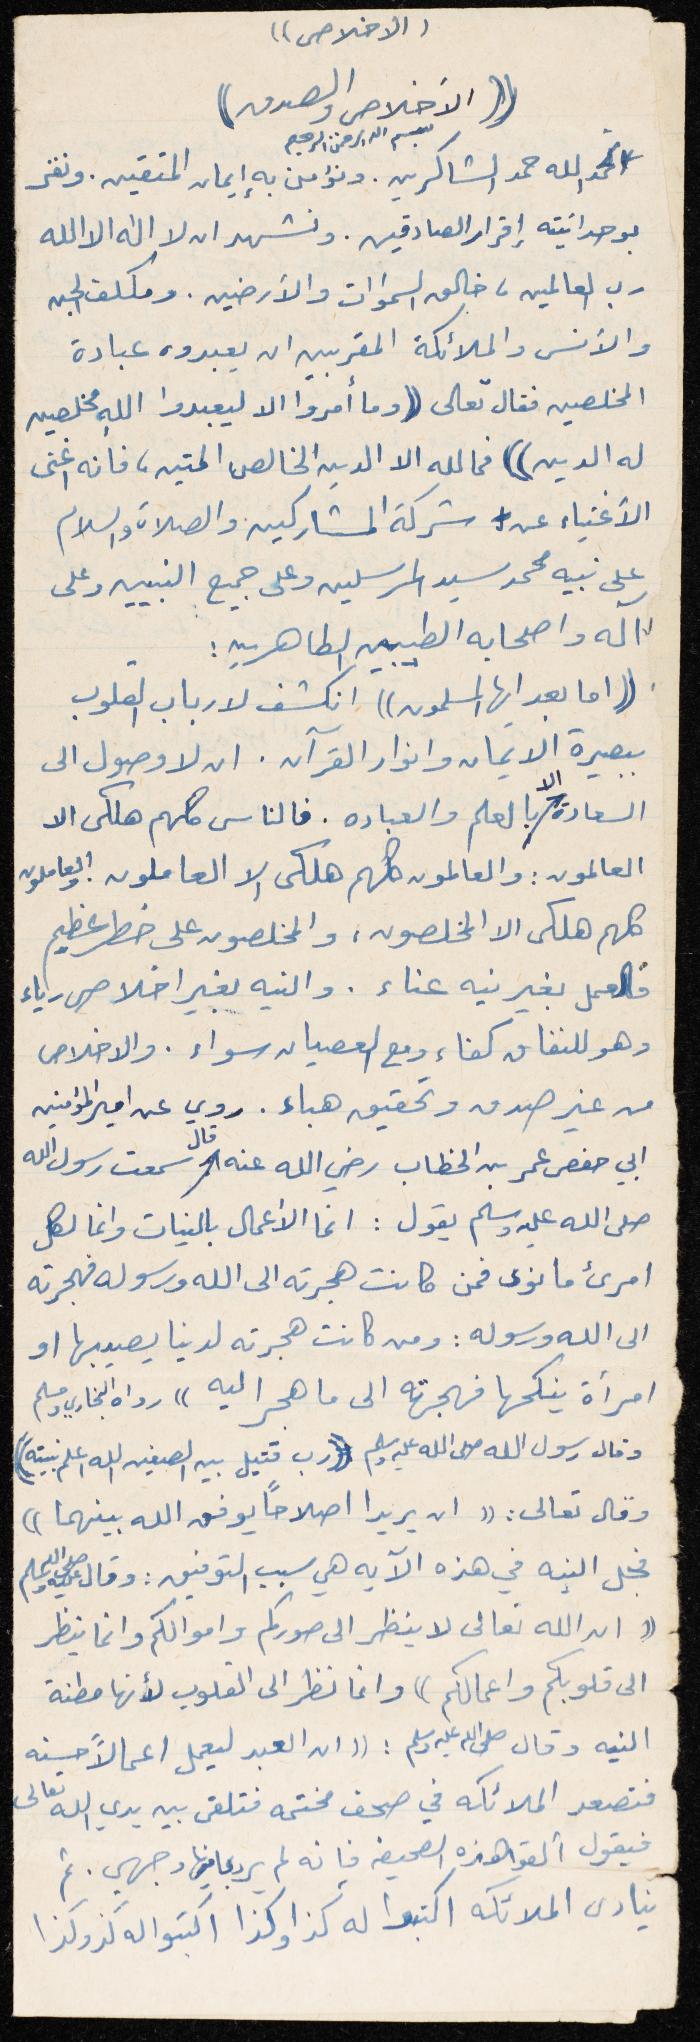 (الاخلاص))
((الاخلاص والصدق))
بسم الله الرحمن الرحيم
الحمد لله حمد الشاكرين . ونؤمن به إيمان المتقين . ونقر
بوحدانيته إقرار الصادقين . ونشهد ان لا اله الا الله
رب العالمين ، خالق السموات والأرضين . ومكلف الجن
والأنس والملائكة المقربين ان يعبدوه عبادة
المخلصين فقال تعالى ((وما أمروا الا ليعبدوا الله مخلصين
له الدين)) فما لله الا الدين الخالص المتين ، فانه اغنى
الأغنياء عن شركة المشاركين والصلاة والسلام
على نبيه محمد سيد المرسلين وعلى جميع النبيين وعلى
آله واصحابه الطيبين الطاهرين :
((اما بعد ايها المسلمون)) انكشف لارباب القلوب
ببصيرة الايمان وانوار القرآن . ان لا وصول الى
السعادة الا بالعلم والعباده . فالناس كلهم هلكى الا
العالمون : والعالمون كلهم هلكى الا العاملون : والعاملون
كلهم هلكى الا المخلصون ، والمخلصون على خطر عظيم
فالعمل بغير نيه عناء . والنيه بغير اخلاص رياء
وهو للنفاق كفاء ، ومع العصيان سواء . والاخلاص
من غير صدق وتحقيق هباء . روي عن امير المؤمنين
ابي حفص عمر بن الخطاب رضي الله عنه قال سمعت رسول الله
صلى الله عليه وسلم يقول : انما الأعمال بالنيات وانما لكل
امرئ ما نوى فمن كانت هجرته الى الله ورسوله فهجرته
الى الله ورسوله : ومن كانت هجرته لدنيا يصيبها او
امرأة ينكحها فهجرته الى ما هجر اليه )) رواه البخاري ومسلم
وقال رسول الله صلى الله عليه وسلم ((رب قتيل بين الصفين الله اعلم بنيته))
وقال تعالى : (( ان يريدا اصلاحاً يوفق الله بينهما ))
فجعل النيه في هذه الآيه هي سبب التوفيق : وقال صلى الله عليه وسلم
(( ان الله تعالى لا ينظر الى صوركم واموالكم وانما ينظر
الى قلوبكم واعمالكم )) وانما نظر الى القلوب لأنها مظنة
النيه وقال صلى الله عليه وسلم : (( ان العبد ليعمل اعمالاً حسنه
فتصعد الملائكه في صحف مختمه فتلقى بين يدي الله تعالى
فيقول ألقوا هذه الصحيفه فإنه لم يرد بما فيها وجهي . ثم
ينادى الملائكه اكتبوا له كذا وكذا اكتبوا له كذ وكذا